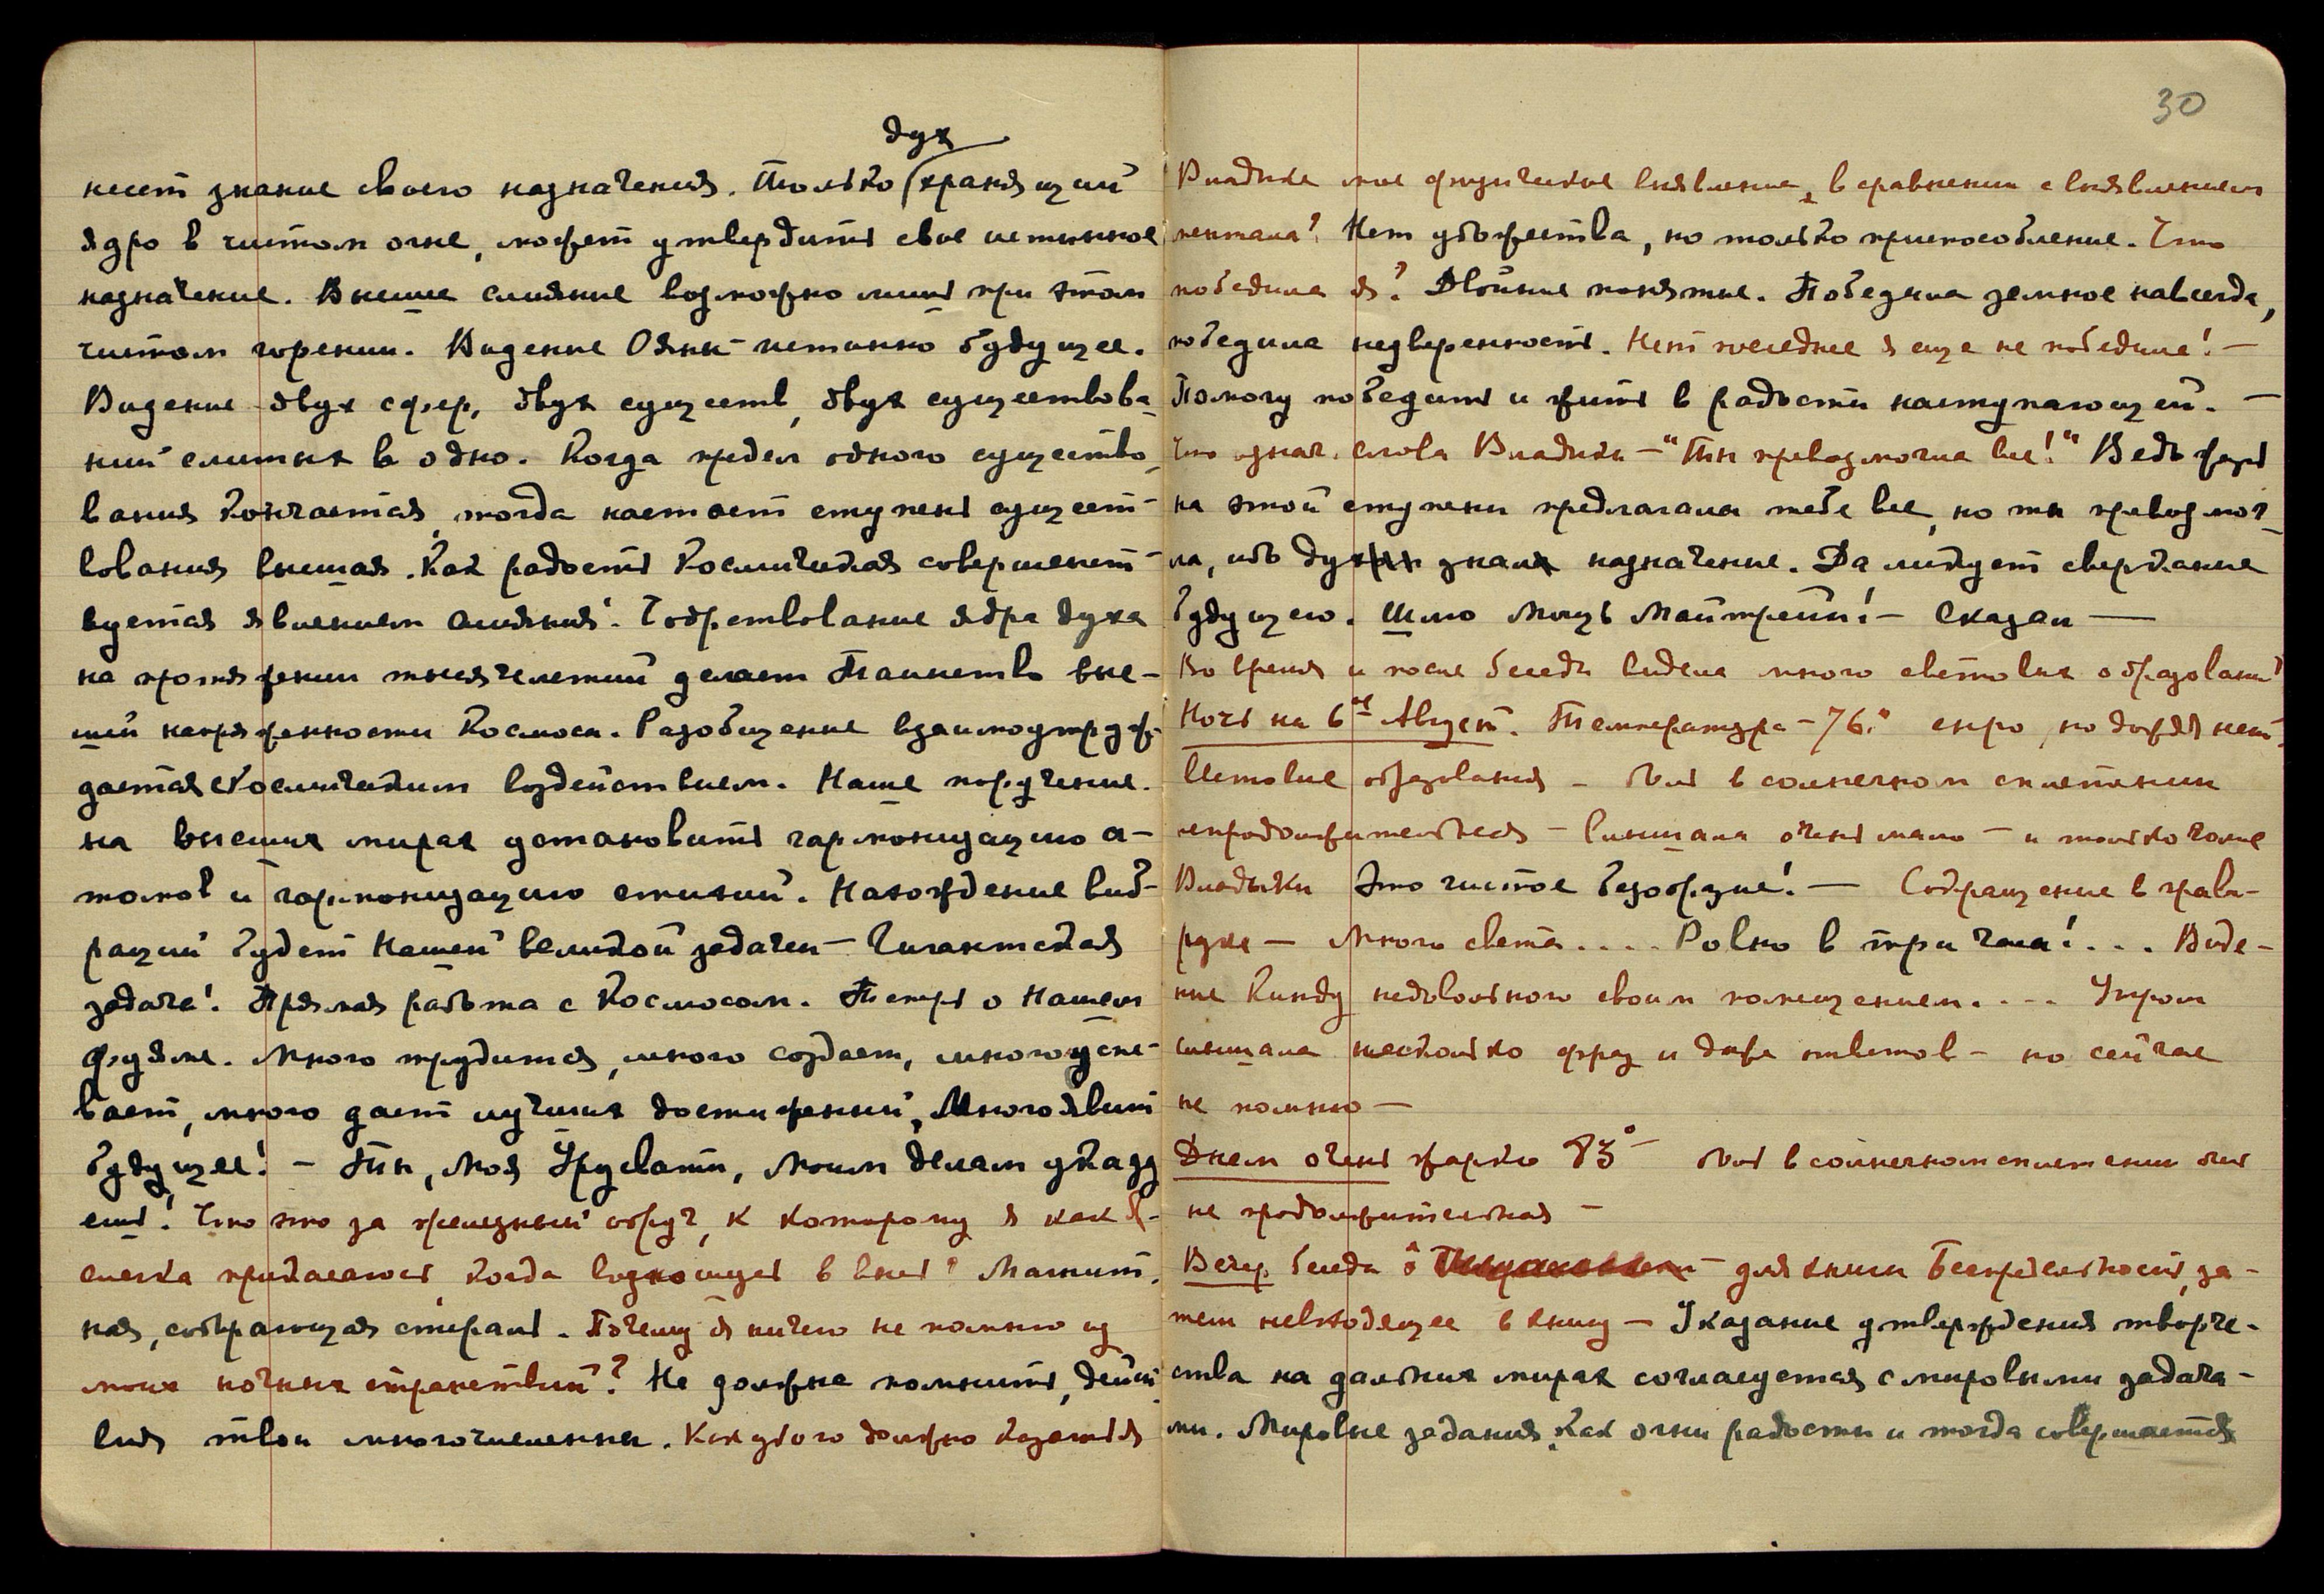 дух
несет знание своего назначения. Только хранящий
ядро в чистом огне, может утвердить свое истинное
назначение. Высшее слияние возможно лишь при этом
чистом горении. Видение Ояны - истинно будущее.
Видение двух сфер, двух существ, двух существова-
ний слитых в одно. Когда предел одного существо-
вания кончается, тогда настает ступень сущест-
вования высшая. Как радость Космическая совершенст-
вуется явлением слияния! Бодрствование ядра духа
на протяжении тысячелетий делает Таинство выс-
шей напряженности Космоса. Разобщение взаимоутруж-
дается Космическим воздействием. Наше поручение
на высших мирах установить гармонизацию а-
томов и гармонизацию стихий. Нахождение виб-
раций будет Нашей великой задачей - Гигантская
задача! Прямая работа с Космосом. Теперь о Нашем
Фуяме. Много трудится, много создает, много успе-
вает, много дает лучших достижений, Много явит
будущее! - Ты, моя Урусвати, моим делам указу
ешь! Что это за железный обруч, к которому я как б-
светка прикасаюсь, когда возношусь в высь? Магнит.
ная, собирающая спираль. Почему я ничего не помню из
моих ночных странствий? Не должна помнить, дейст-
вия твои многочисленны. Как убого должно казаться
30
Владыке мое физическое выявление, в сравнении с выявлением
ментала? Нет убожества, но только приспособление. Что
победила я? Двойное понятие. Победила земное навсегда,
победила неуверенность. Нет последнее я еще не победила! -
Помогу победить и жить в радости наступающей. -
Что означ. слова Владыки - "Ты превозмогла все!" Ведь жизнь
на этой ступени предлагала тебе все, но ты превозмог-
ла, ибо дух знал назначение. Да ликует сверкание
будущего. Шлю Мощь Майтрейи! - Сказал -
Во время и после беседы видела много световых образований
Ночь на 6ое Август. Температура - 76.° сыро, но дождя нет.
Световые образования - боль в солнечном сплетении
непродолжительная - слышала очень мало - и только голос
Владыки Это чистое безобразие! - Сокращение в правой
руке - Много света.... Ровно в три часа!... Виде-
ние Кинду недовольного своим помещением.... Утром
слышала несколько фраз и даже ответов - но сейчас
не помню -
Днем очень жарко 83° - боль в солнечном сплетении была
не продолжительная -
Вечер беседа - для книги Беспредельность, за-
тем невходящее в книгу - Указание утверждения творче-
ства на дальних мирах согласуется с мировыми задача-
ми. Мировые задания, как огни радости и тогда совершается